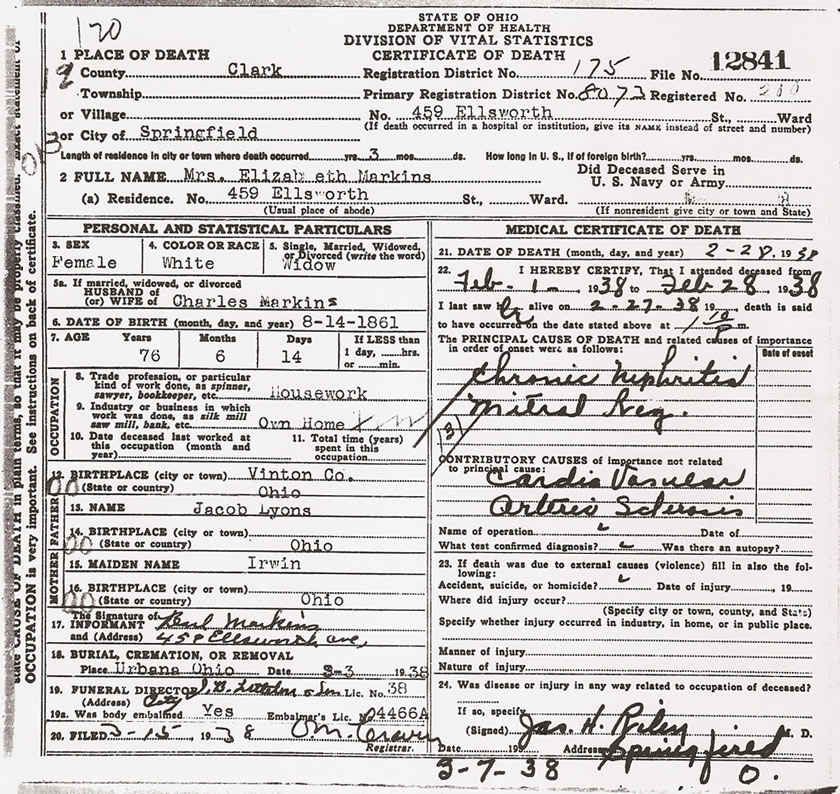 STATE OF OHIO
DEPARTMENT OF HEALTH
DIVISION OF VITAL STATISTICS
CERTIFICATE OF DEATH
120
12841
1 PLACE OF DEATH
County Clark Registration District No. 175 File No.
Township Primary Registration District No. 8073 Registered No.
or Village No. 459 Ellsworth St., Ward
or City of Springfield (If death occurred in a hospital or institution, give its NAME instead of street and number)
Length of residence in city or town where death occurred yrs. 3 mos. ds. How long in U.S., if of foreign birth? yrs. mos. ds.
2 FULL NAME Mrs. Elizabeth Markins Did Deceased Serve in U. S. Navy or Army
(a) Residence. No. 459 Ellsworth St., Ward.
(Usual place of abode) (If nonresident give city or town and State)
PERSONAL AND STATISTICAL PARTICULARS
3. SEX Female
4. COLOR OR RACE White
5. Single, Married, Widowed, or Divorced (write the word) Widow
5a. If married, widowed, or divorced
HUSBAND of
(or) WIFE of Charles Markins
6. DATE OF BIRTH (month, day, and year) 8-14-1861
7. AGE Years Months Days If LESS than
76 6 14 1 day, hrs.
or min.
OCCUPATION
8. Trade, profession, or particular
kind of work done, as spinner,
sawyer, bookkeeper, etc. Housework
9. Industry or business in which
work was done, as silk mill
saw mill, bank, etc. Own Home
10. Date deceased last worked at
this occupation (month and
year)
11. Total time (years)
spent in this
occupation
12. BIRTHPLACE (city or town) Vinton Co.
(State or country) Ohio
FATHER
13. NAME Jacob Lyons
14. BIRTHPLACE (city or town)
(State or country) Ohio
MOTHER
15. MAIDEN NAME Irwin
16. BIRTHPLACE (city or town)
(State or country) Ohio
The Signature of
17. INFORMANT Markins
and (Address) 459 Ellsworth ave,
18. BURIAL, CREMATION, OR REMOVAL
Place Urbana Ohio Date 3-3 1938
19. FUNERAL DIRECTOR & Son Lic. No. 38
(Address) City
19a. Was body embalmed Yes Embalmer's Lic. No. 4466A
20. FILED 3-15, 1938
Registrar.
MEDICAL CERTIFICATE OF DEATH
21. DATE OF DEATH (month, day, and year) 2-28, 1938
22. I HEREBY CERTIFY, That I attended deceased from
Feb. 1 - 1938 to Feb 28, 1938
I last saw her alive on 2-27-38 19 , death is said
to have occurred on the date stated above at 1 10 P m.
The PRINCIPAL CAUSE OF DEATH and related causes of importance
in order of onset were as follows: Date of onset
Chronic Nephritis
Mitral Reg.
131
CONTRIBUTORY CAUSES of importance not related
to principal cause:
Cardio Vascular
Arterio Sclerosis
Name of operation Date of
What test confirmed diagnosis? Was there an autopsy?
23. If death was due to external causes (violence) fill in also the fol-
lowing:
Accident, suicide, or homicide? Date of injury , 19
Where did injury occur?
(Specify city or town, county, and State)
Specify whether injury occurred in industry, in home, or in public place.
Manner of injury
Nature of injury
24. Was disease or injury in any way related to occupation of deceased?
If so, specify
(Signed) Jas. H. Riley M. D.
Date 19 Address Springfield
3-7-38 O.
state CAUSE OF DEATH in plain terms, so that it may be properly classified. Exact statement of
OCCUPATION is very important. See instructions on back of certificate.